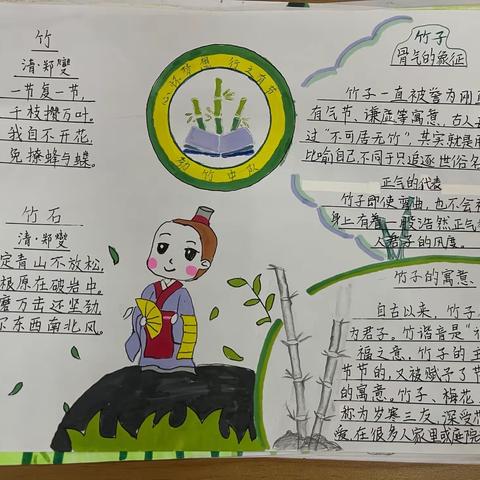 竹
清·郑燮
一节复一节，
千枝攒万叶。
我自不开花，
免撩蜂与蝶。
竹石
清·郑燮
定青山不放松，
根原在破岩中。
磨万击还坚劲，
尔东西南北风。
心怀梦想 行之有节
劲竹中队
竹子
骨气的象征
竹子一直被誉为刚直
有气节、谦虚等寓意，古人
过“不可居无竹”，其实就是用
比喻自己不同于只追逐世俗名
正气的代表
竹子即使弯曲，也不会
身上有着一股浩然正气
人君子的风度。
竹子的寓意
自古以来，竹子
为君子。竹谐音是“祝
福之意，竹子的主
节节的，又被赋予了节
的寓意。竹子、梅花、
称为岁寒三友，深受
爱，在很多人家里或庭院